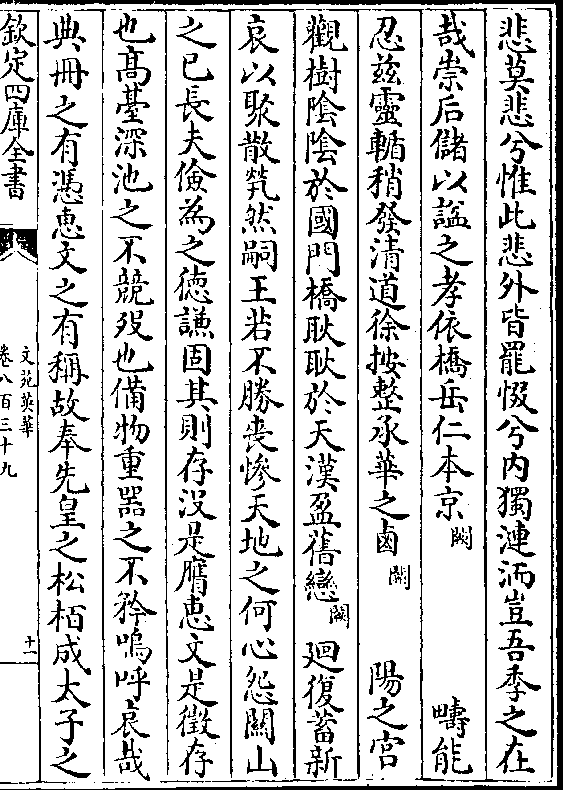 悲莫悲兮惟此悲外皆罷惙兮内獨漣洏豈吾季之在
哉崇后儲以諡之孝依橋岳仁本京闕　疇能
忍兹靈輴稍發清道徐按整承華之鹵闕　陽之宫
觀樹陰陰於國門橋耿耿於天漢盈舊戀闕　廻復蓄新
哀以聚散煢然嗣王若不勝喪慘天地之何心怨關山
之已長夫儉為之徳謙固其則存没是膺恵文是徴存
也髙䑓深池之不競歿也備物重器之不矜嗚呼哀哉
典冊之有憑恵文之有稱故奉先皇之松栢成太子之
欽定四庫全書
文苑英華
卷八百三十九
十一